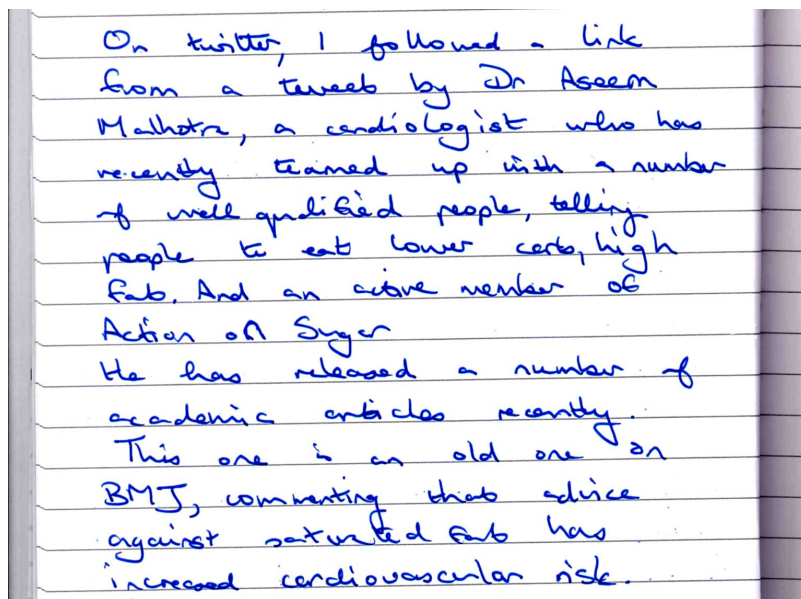 On twitter, I followed a link
from a tweet by Dr Aseem
Malhotra, a cardiologist who has
recently teamed up with a number
of well qualified people, telling
people to eat lower carbs, high
fat. And an active member of
Action on Sugar
He has released a number of
academic articles recently.
This one is an old one on
BMJ, commenting that advice
against saturated fat has
increased cardiovascular risk.